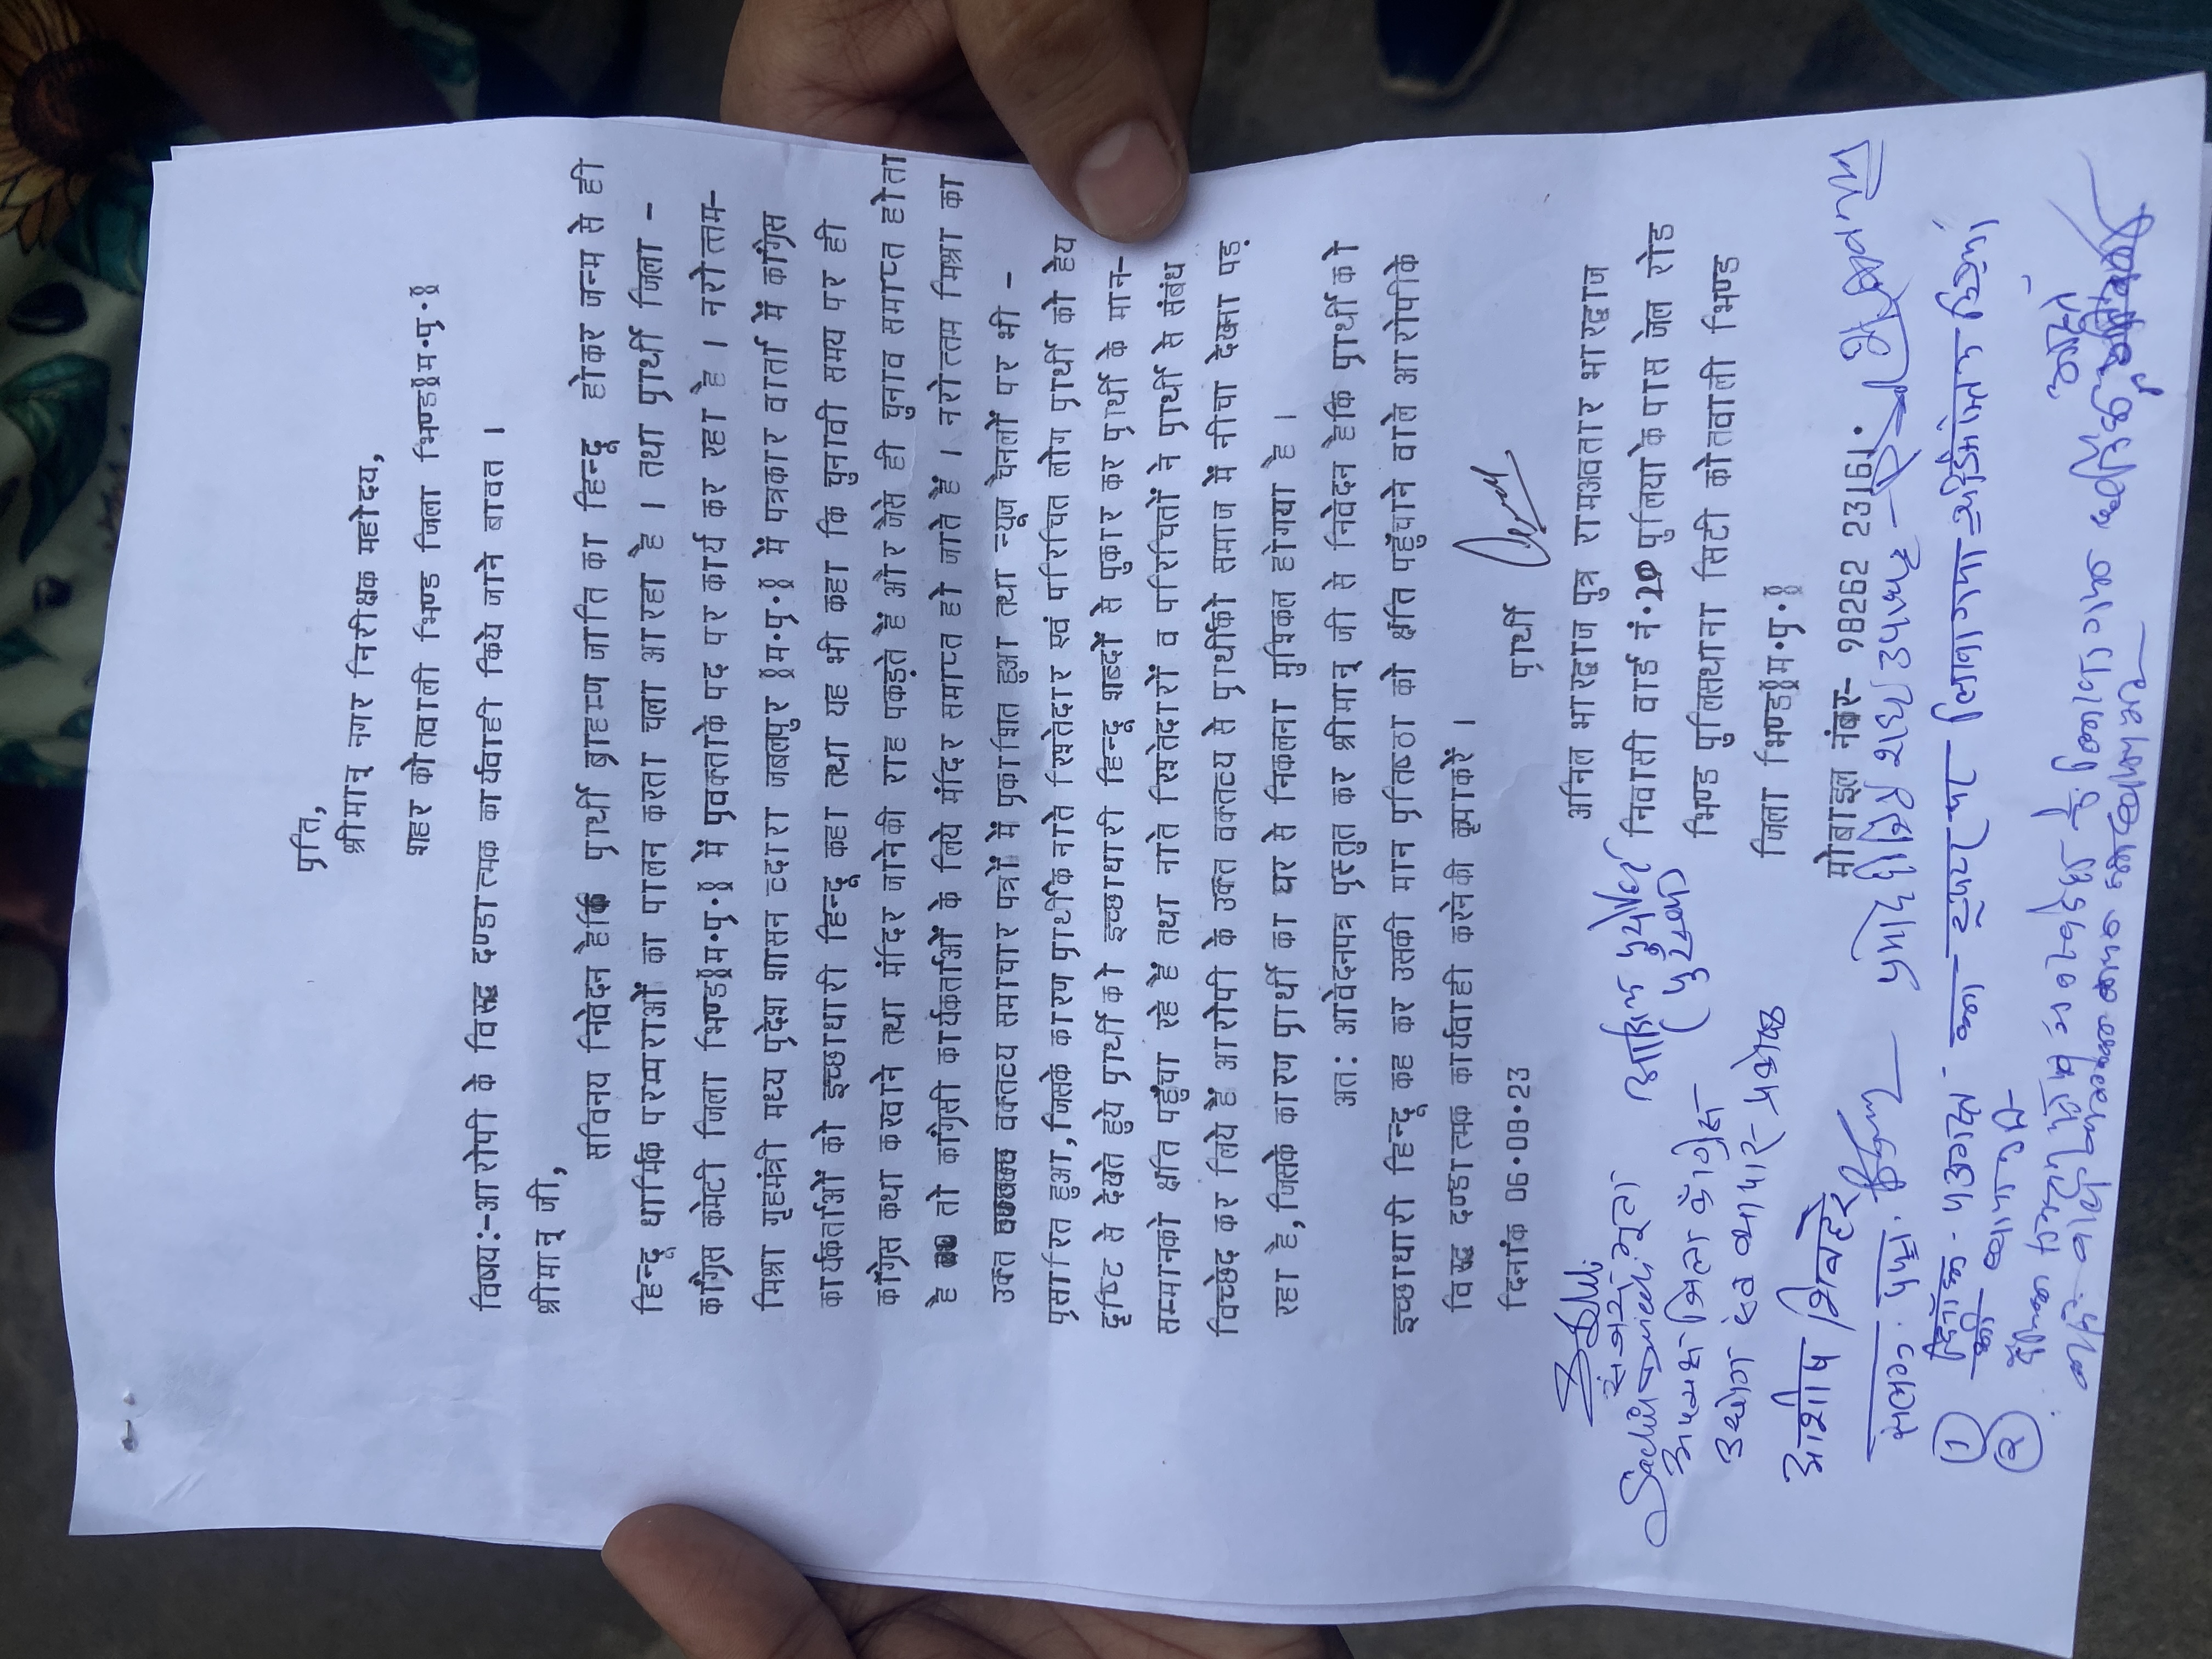 प्रति,
श्रीमान् नगर निरीक्षक महोदय,
शहर कोतवाली भिण्ड जिला भिण्ड(म.प्र.)
विषय:-आरोपी के विरुद्ध दण्डात्मक कार्यवाही किये जाने बावत ।
श्रीमान् जी,
सविनय निवेदन हैकि प्रार्थी ब्राहम्ण जाति का हिन्दू होकर जन्म से ही
हिन्दू धार्मिक परम्पराओं का पालन करता चला आ रहा है । तथा प्रार्थी जिला -
काँग्रेस कमेटी जिला भिण्ड(म.प्र.) में प्रवक्ताके पद पर कार्य कर रहा है । नरोत्तम-
मिश्रा गृहमंत्री मध्य प्रदेश शासन व्दारा जबलपुर (म.प्र.) में पत्रकार वार्ता में काँग्रेस
कार्यकर्ताओं को इच्छाधारी हिन्दू कहा तथा यह भी कहा कि चुनावी समय पर ही
काँग्रेस कथा करवाने तथा मंदिर जानेकी राह पकड़ते हैं और जैसे ही चुनाव समाप्त होता
है तो काँग्रेसी कार्यकर्ताओं के लिये मंदिर समाप्त हो जाते हैं । नरोत्तम मिश्रा का
उक्त वक्तव्य समाचार पत्रों में प्रकाशित हुआ तथा न्यूज चैनलों पर भी -
प्रसारित हुआ,जिसके कारण प्रार्थीके नाते रिश्तेदार एवं परिचित लोग प्रार्थी को हेय
दृष्टि से देखते हुये प्रार्थी को इच्छाधारी हिन्दू शब्दों से पुकार कर प्रार्थी के मान-
सम्मानको क्षति पहुँचा रहे हैं तथा नाते रिश्तेदारों व परिचितों ने प्रार्थी से संबंध
विच्छेद कर लिये हैं आरोपी के उक्त वक्तव्य से प्रार्थीको समाज में नीचा देखना पड़
रहा है,जिसके कारण प्रार्थी का घर से निकलना मुश्किल होगया है ।
अत: आवेदनपत्र प्रस्तुत कर श्रीमान् जी से निवेदन हैकि प्रार्थी को
इच्छाधारी हिन्दू कह कर उसकी मान प्रतिष्ठा को क्षति पहुँचाने वाले आरोपीके
विरुद्ध दण्डात्मक कार्यवाही करनेकी कृपाकरें ।
दिनांक 06.08.23
प्रार्थी
अनिल भारद्वाज पुत्र रामअवतार भारद्वाज
निवासी वार्ड नं.20 पुलिया के पास जेल रोड
भिण्ड पुलिसथाना सिटी कोतवाली भिण्ड
जिला भिण्ड(म.प्र.)
मोबाइल नंबर- 98262 23161.
संजय भूता
जिला काँग्रेस
उद्योग एवं व्यापार प्रकोष्ठ
आशीष शिवहरे
①
②